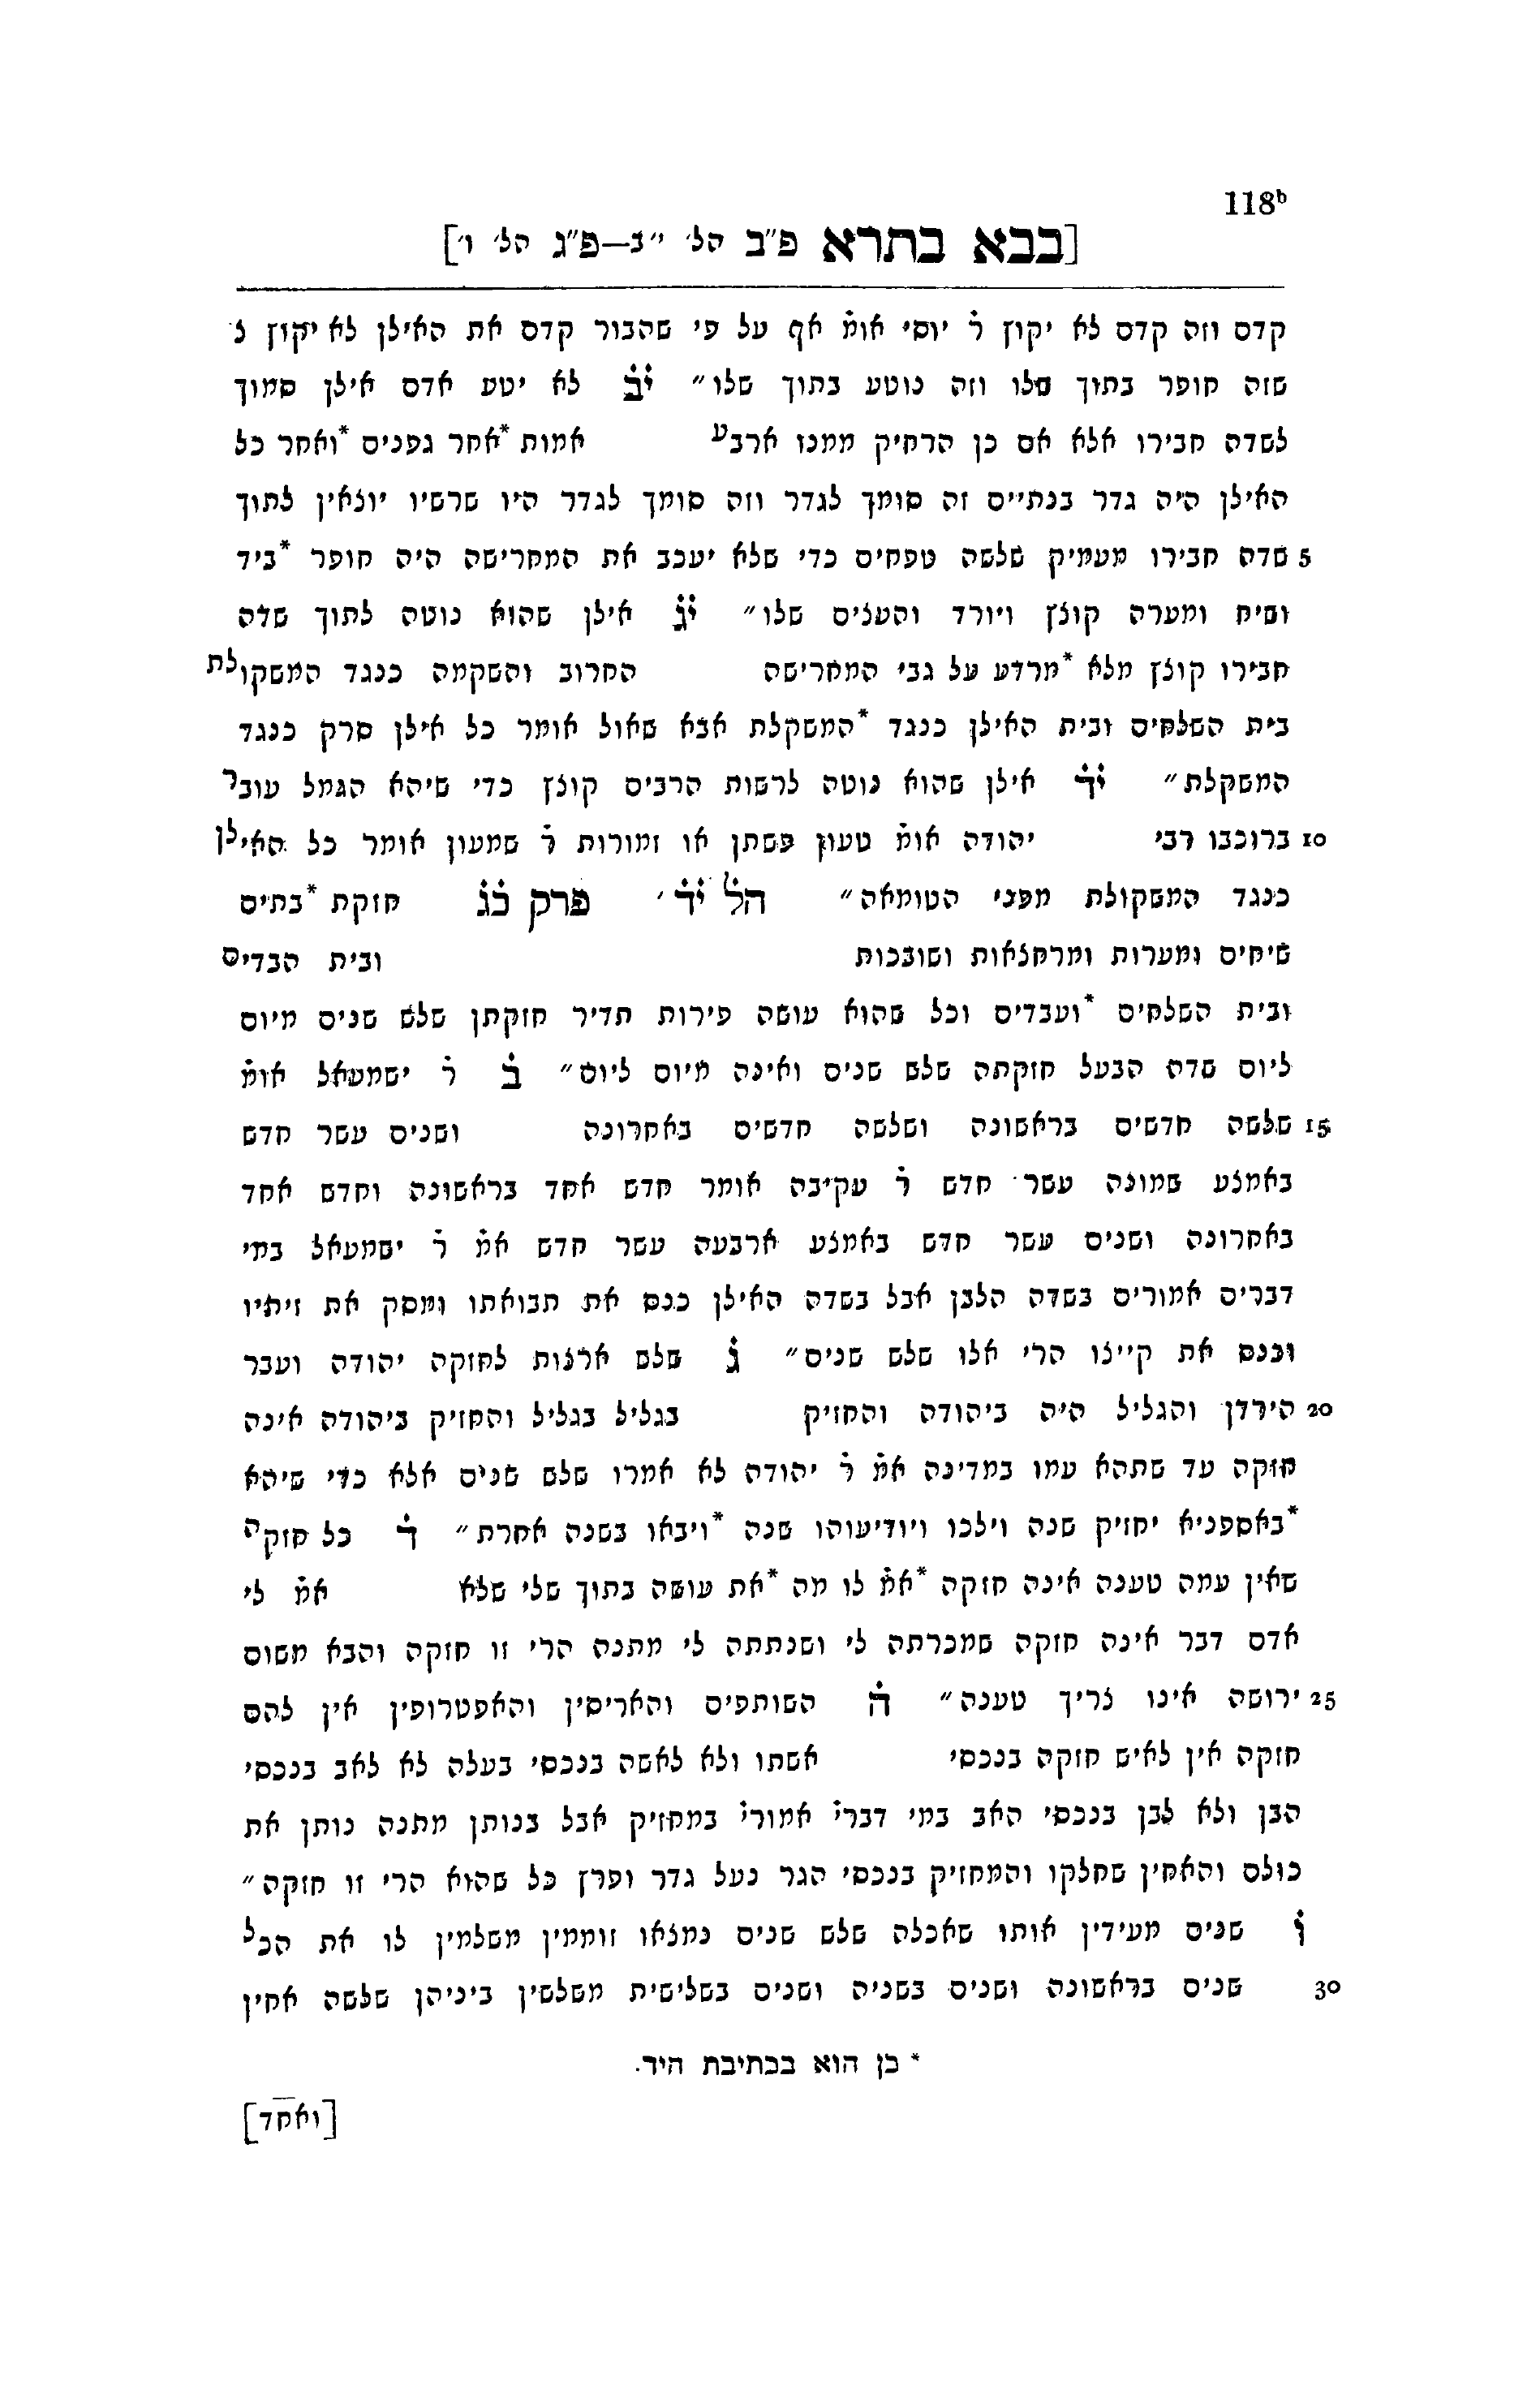 118ᵇ
[בבא בתרא פ״ב הל׳ י״ב—פ״ג הל׳ ו׳]
קדם וזה קדם לא יקוץ ר̇ יוסי אומ̇ אף על פי שהבור קדם את האילן לא יקוץ צ
שזה חופר בתוך שלו וזה נוטע בתוך שלו״ יב̇ לא יטע אדם אילן סמוך
לשדה חבירו אלא אם כן הרחיק ממנו ארבע אמות *אחר גפנים *ואחר כל
האילן היה גדר בנתיים זה סומך לגדר וזה סומך לגדר היו שרשיו יוצאין לתוך
5 שדה חבירו מעמיק שלשה טפחים כדי שלא יעכב את המחרישה היה חופר *ביד
ושיח ומערה קוצץ ויורד והעצים שלו״ יג̇ אילן שהוא נוטה לתוך שדה
חבירו קוצץ מלא *מרדע על גבי המחרישה החרוב והשקמה כנגד המשקולת
בית השלחים ובית האילן כנגד *המשקלת אבא שאול אומר כל אילן סרק כנגד
המשקלת״ יד̇ אילן שהוא נוטה לרשות הרבים קוצץ כדי שיהא הגמל עובר
10 ברוכבו רבי יהודה אומ̇ טעון פשתן או זמורות ר̇ שמעון אומר כל האילן
כנגד המשקולת מפני הטומאה״ הל̇ יד̇ ׳ פרק כ̇ג̇ חזקת *בתים
שיחים ומערות ומרחצאות ושובכות ובית הבדים
ובית השלחים *ועבדים וכל שהוא עושה פירות תדיר חזקתן שלש שנים מיום
ליום שדה הבעל חזקתה שלש שנים ואינה מיום ליום״ ב̇ ר̇ ישמעאל אומ̇
15 שלשה חדשים בראשונה ושלשה חדשים באחרונה ושנים עשר חדש
באמצע שמונה עשר חדש ר̇ עקיבה אומר חדש אחד בראשונה וחדש אחד
באחרונה ושנים עשר חדש באמצע ארבעה עשר חדש אמ̇ ר̇ ישמעאל במי
דברים אמורים בשדה הלבן אבל בשדה האילן כנס את תבואתו ומסק את זיתיו
וכנס את קייצו הרי אלו שלש שנים״ ג̇ שלש ארצות לחזקה יהודה ועבר
20 הירדן והגליל היה ביהודה והחזיק בגליל בגליל והחזיק ביהודה אינה
חזקה עד שתהא עמו במדינה אמ̇ ר̇ יהודה לא אמרו שלש שנים אלא כדי שיהא
*באספניא יחזיק שנה וילכו ויודיעוהו שנה *ויבאו בשנה אחרת״ ד̇ כל חזקה
שאין עמה טענה אינה חזקה *אמ̇ לו מה *את עושה בתוך שלי שלא אמ̇ לי
אדם דבר אינה חזקה שמכרתה לי ושנתתה לי מתנה הרי זו חזקה והבא משום
25 ירושה אינו צריך טענה״ ה̇ השותפים והאריסין והאפטרופין אין להם
חזקה אין לאיש חזקה בנכסי אשתו ולא לאשה בנכסי בעלה לא לאב בנכסי
הבן ולא לבן בנכסי האב במי דברי̇ אמורי̇ במחזיק אבל בנותן מתנה נותן את
כולם והאחין שחלקו והמחזיק בנכסי הגר נעל גדר ופרץ כל שהוא הרי זו חזקה״
ו̇ שנים מעידין אותו שאכלה שלש שנים נמצאו זוממין משלמין לו את הכל
30 שנים בראשונה ושנים בשניה ושנים בשלישית משלשין ביניהן שלשה אחין
* כן הוא בכתיבת היד.
[ואחד]